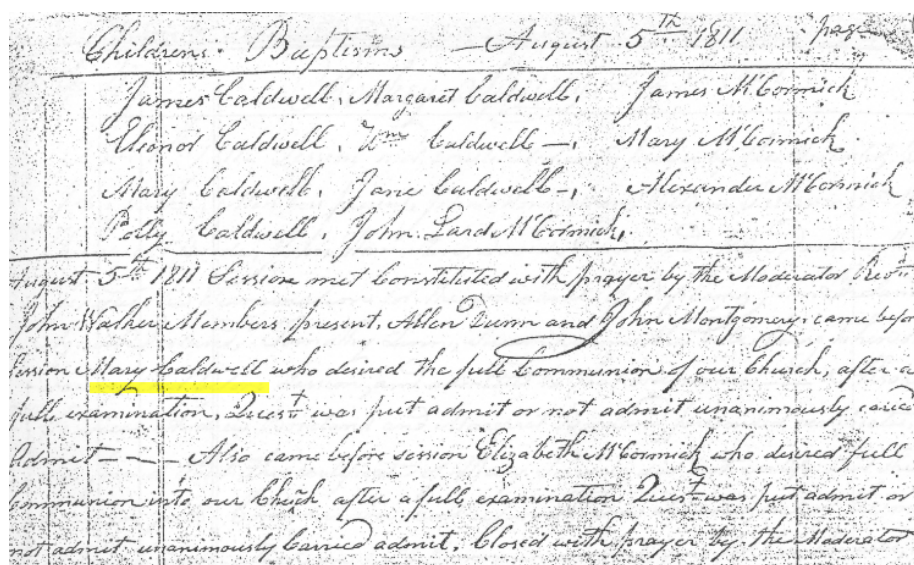 Childrens Baptisms — August 5th 1811 page
James Caldwell, Margaret Caldwell, James McCormick
Elenor Caldwell, Wm Caldwell —, Mary McCormick
Mary Caldwell, Jane Caldwell —, Alexander McCormick
Polly Caldwell, John Lard McCormick,
August 5th 1811 Session met Constituted with prayer by the Moderator Revd
John Walker Members present, Allen Dunn and John Montgomery, came before
Session Mary Caldwell who desired the full Communion of our Church, after a
full examination, Quest was put admit or not admit unanimously caried
Admit — — Also came before session Elizabeth McCormick who desired full
Communion into our Chuch after a full examination Quest was put admit or
not admit unanimously Carried admit. Closed with prayer by the Moderator